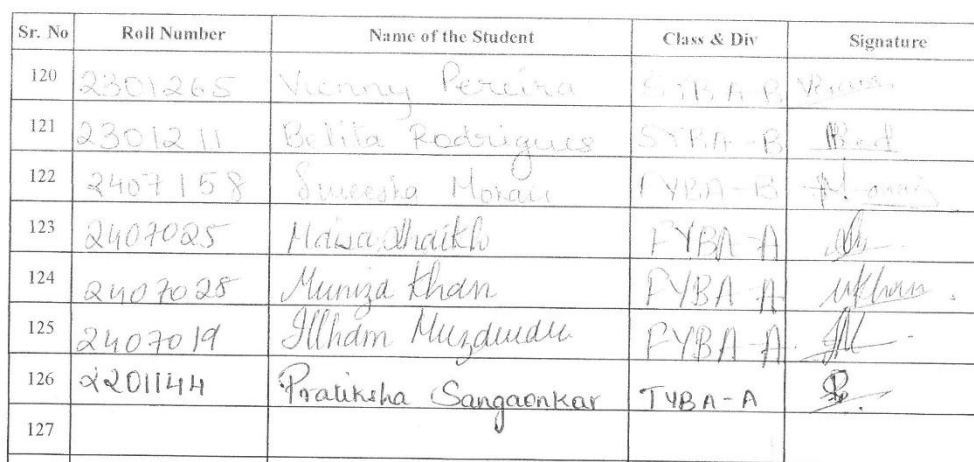 Sr. No Roll Number Name of the Student Class & Div Signature
120 2301265 Vienny Pereira SYBA-B
121 2301211 Belita Rodrigues SYBA-B
122 2407158 FYBA-B
123 2407025 Shaikh FYBA-A
124 2407028 Muniza Khan FYBA-A
125 2407019 Illham FYBA-A
126 2201144 Pratiksha Sangaonkar TYBA-A
127